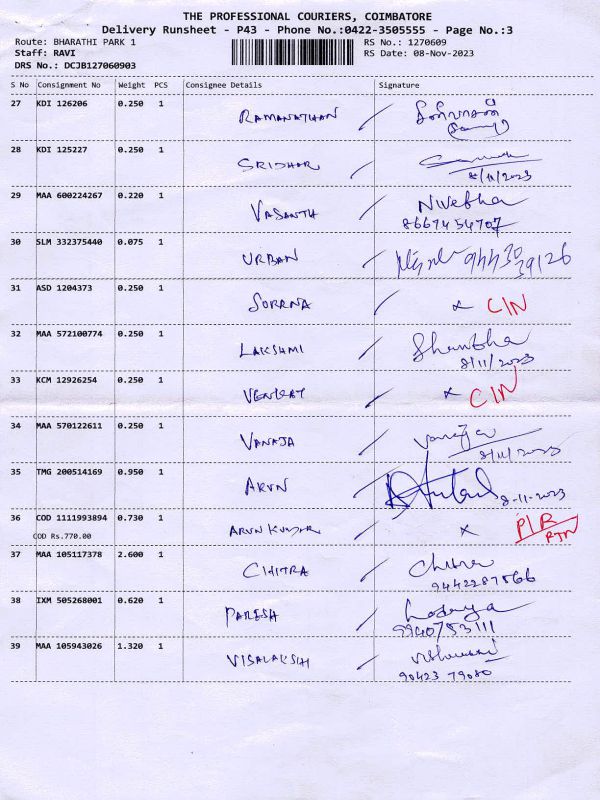 THE PROFESSIONAL COURIERS, COIMBATORE
Delivery Runsheet - P43 - Phone No.:0422-3505555 - Page No.:3
Route: BHARATHI PARK 1 RS No.: 1270609
Staff: RAVI RS Date: 08-Nov-2023
DRS No.: DCJB127060903
S No Consignment No Weight PCS Consignee Details Signature
27 KDI 126206 0.250 1 RAMANATHAN
28 KDI 125227 0.250 1 SRIDHAR
8/11/2023
29 MAA 600224267 0.220 1 VASANTH Nivetha
8667454707
30 SLM 332375440 0.075 1 URBAN 94430
39126
31 ASD 1204373 0.250 1 x C/N
32 MAA 572100774 0.250 1 LAKSHMI
8/11/2023
33 KCM 12926254 0.250 1 VENKAT x C/N
34 MAA 570122611 0.250 1 VANAJA Vanaja
8/11/2023
35 TMG 200514169 0.950 1 ARUN 8-11-2023
36 COD 1111993894 0.730 1 ARUN KUMAR x P/R
COD Rs.770.00 RTN
37 MAA 105117378 2.600 1 CHITRA Chitra
9442287566
38 IXM 505268001 0.620 1 PARESH
9940753111
39 MAA 105943026 1.320 1 VISALAKSHI
90423 79080